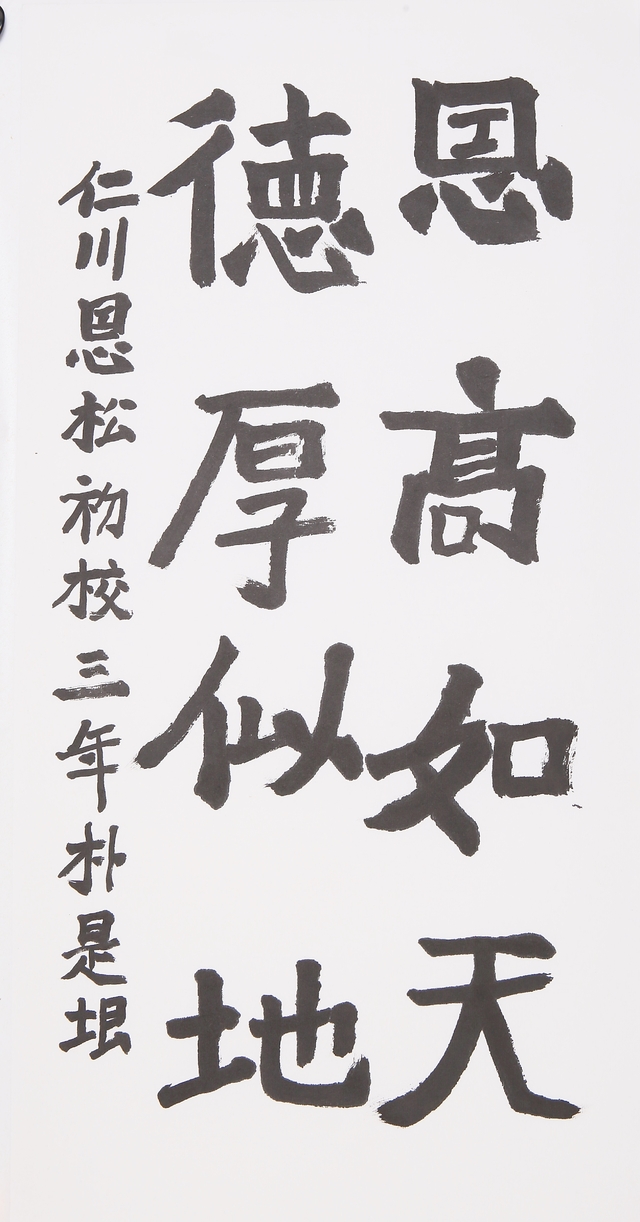 恩高如天
德厚似地
仁川恩松初校三年朴是垠